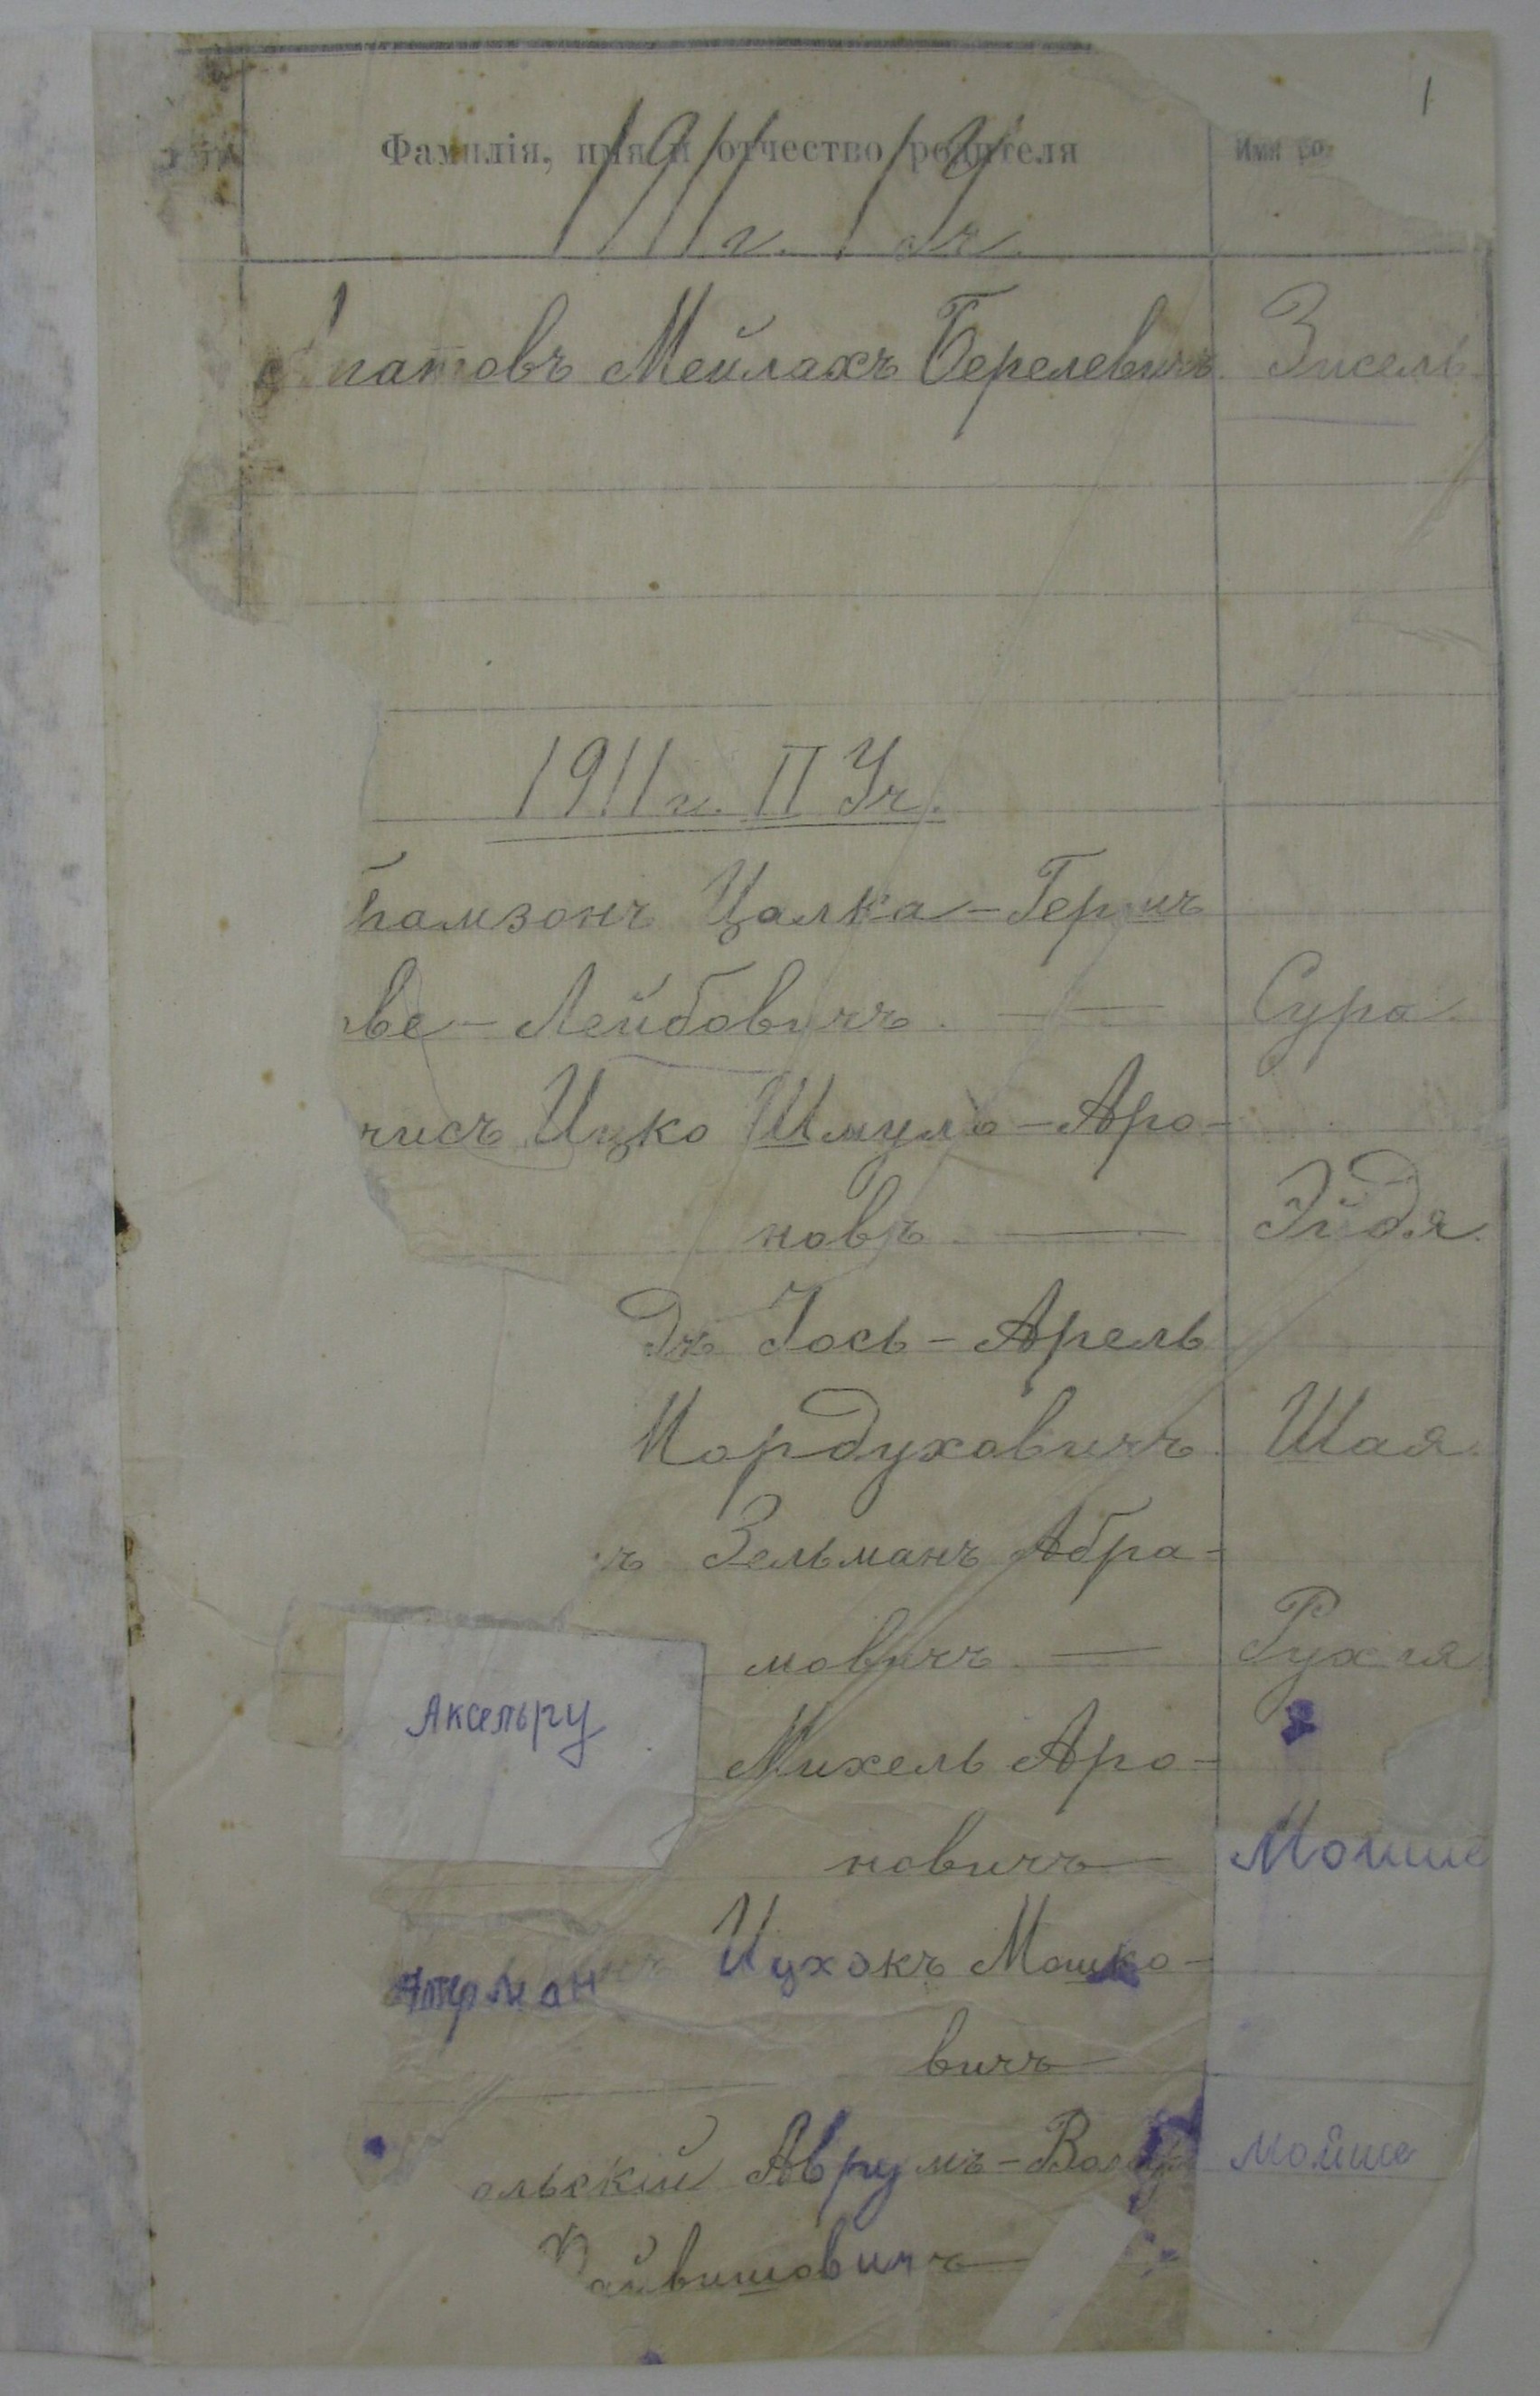 1
Фамилія, имя и отчество родителя Имя
1911 г. I Уч.
патовъ Мейлахъ Берелевичъ Зисель
1911 г. II Уч.
амзонъ Цалка-Гершъ
ве-Лейбовичъ. — Сура.
чисъ Ицко Шмуль-Аро-
новъ. — Эйдя.
дъ Іось-Арель
Мордуховичъ. Шая.
ъ Зельманъ Абра-
мовичъ. — Рухля
Аксельру Михель Аро-
новичъ — Мойше
Ицхокъ Мошко-
вичъ —
ольскій Аврумъ- Мойше
айвишовичъ —